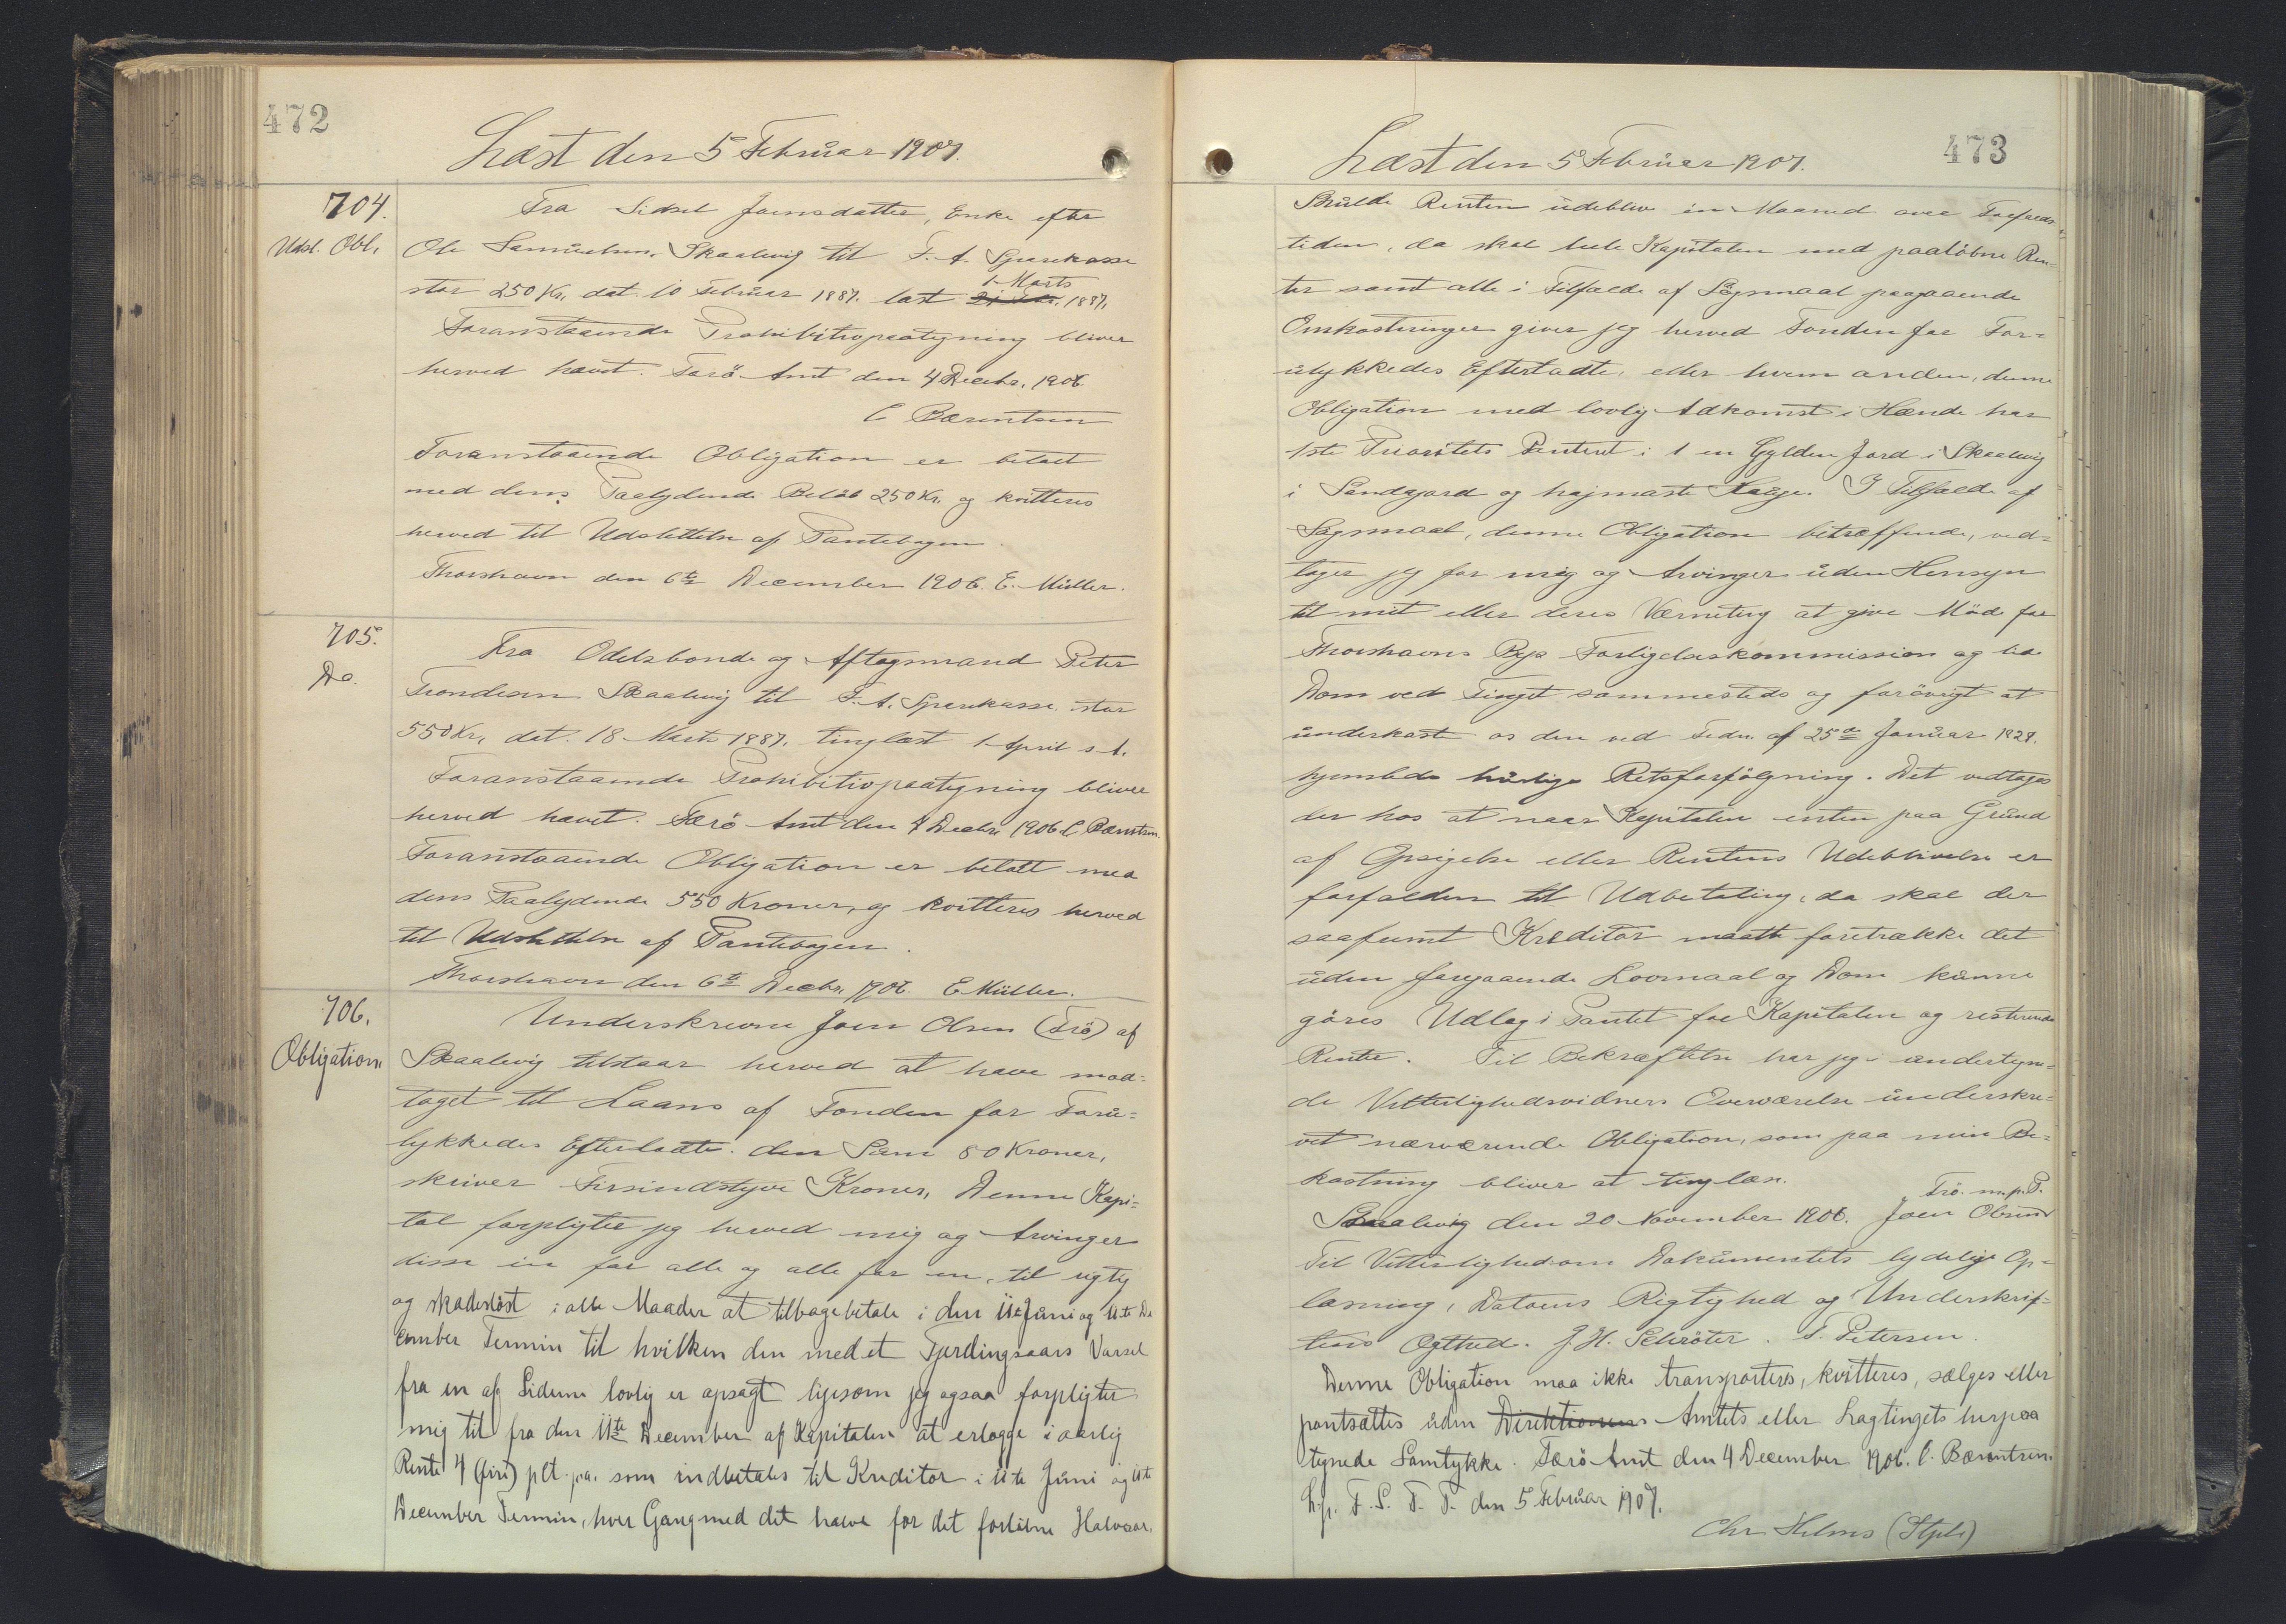 472
Læst den 5 Februar 1907.
704.
Udsl. Obl.
Fra Sidsel Joensdatter, Enke efter
Ole Samuelsen, Skaalevig til F. A. Sparekasse
1 Marts
stor 250 Kr. dat. 10 Februar 1887. læst 21 Febr. 1887.
Foranstaaende Prohibitivpaategning bliver
herved hævet. Færö Amt den 4 Decbr. 1906.
C Bærentsen
Foranstaaende Obligation er betalt
med dens Paalydende Beløb 250 Kr. og kvitteres
herved til Udslettelse af Pantebogen.
Thorshavn den 6te December 1906. E. Müller.
705.
Do.
Fra Odelsbonde og Aftagsmand Peter
Trondesen Skaalevig til F. A. Sparekasse stor
550 Kr. dat. 18 Marts 1887. tinglæst 1 April s. A.
Foranstaaende Prohibitivpaategning bliver
herved hævet. Færö Amt den 4 Decbr 1906. C. Bærentsen
Foranstaaende Obligation er betalt med
dens Paalydende 550 Kroner, og kvitteres herved
til Udslettelse af Pantebogen.
Thorshavn den 6te Decbr. 1906. E Müller.
706.
Obligation
Underskrevne Joen Olsen (Trö) af
Skaalevig tilstaar herved at have mod=
taget til Laans af Fonden for Foru=
lykkedes Efterladte. den Sum 80 Kroner,
skriver Firsindstyve Kroner, Denne Kapi=
tal forpligter jeg herved mig og Arvinger
disse en for alle og alle for en, til rigtig
og skadesløst i alle Maader at tilbagebetale i den 11te Juni og 11te De
cember Termin til hvilken den med et Fjerdingaars Varsel
fra en af Siderne lovlig er opsagt ligesom jeg ogsaa forpligter
mig til fra den 11te December af Kapitalen at erlægge i aarlig
Rente 4 (fire) pCt. p.a. som indbetales til Kreditor i 11te Juni og 11te
December Termin, hver Gang med det halve for det forløbne Halvaar.
473
Læst den 5 Februar 1907.
Skulde Renten udeblive en Maaned over Forfalds=
tiden, da skal hele Kapitalen med paaløbne Ren=
ter samt alle i Tilfælde af Søgsmaal paagaaende
Omkostninger giver jeg herved Fonden for For=
ulykkedes Efterladte, eller hvem anden, denne
Obligation med lovlig Adkomst i Hænde har
1ste Prioritets Panteret i 1 en Gylden Jord i Skaalevig
i Sandgard og højmaste Hauge. I Tilfælde af
Søgsmaal, denne Obligation betræffende, ved=
tager jeg for mig og Arvinger uden Hensyn
til mit eller deres Værneting at give Møde for
Thorshavns Bys Forligelseskommission og lide
Dom ved Tinget sammesteds og forøvrigt at
underkaste os den ved Frdn. af 25de Januar 1828.
hjemlede hurtige Retsforfølgning. Det vedtages
der hos at naar Kapitalen enten paa Grund
af Opsigelse eller Rentens Udeblivelse er
forfalden til Udbetaling, da skal der
saafremt Kreditor maatte foretrække det
uden foregaaende Lovmaal og Dom kunne
gøres Udlæg i Pantet for Kapitalen og resterende
Renter. Til Bekræftelse har jeg i undertegne=
de Vitterlighedsvidners Overværelse underskre=
vet nærværende Obligation, som paa min Be=
kostning bliver at tinglæse.
Trö. m. p. P.
Skaalevig den 20 November 1906. Joen Olsen
Til Vitterlighed om Dokumentets lydelige Op=
læsning, Datoens Rigtighed og Underskrif=
tens Ægthed. J. H. Schröter. T. Petersen.
Denne Obligation maa ikke transporteres, kvitteres, sælges eller
pantsættes uden Direktionens Amtets eller Lagtingets herpaa
tegnede Samtykke. Færö Amt den 4 December 1906. C. Bærentsen.
L. p. F. S. T. P. den 5 Februar 1907.
Chr. Helms (Stpls)